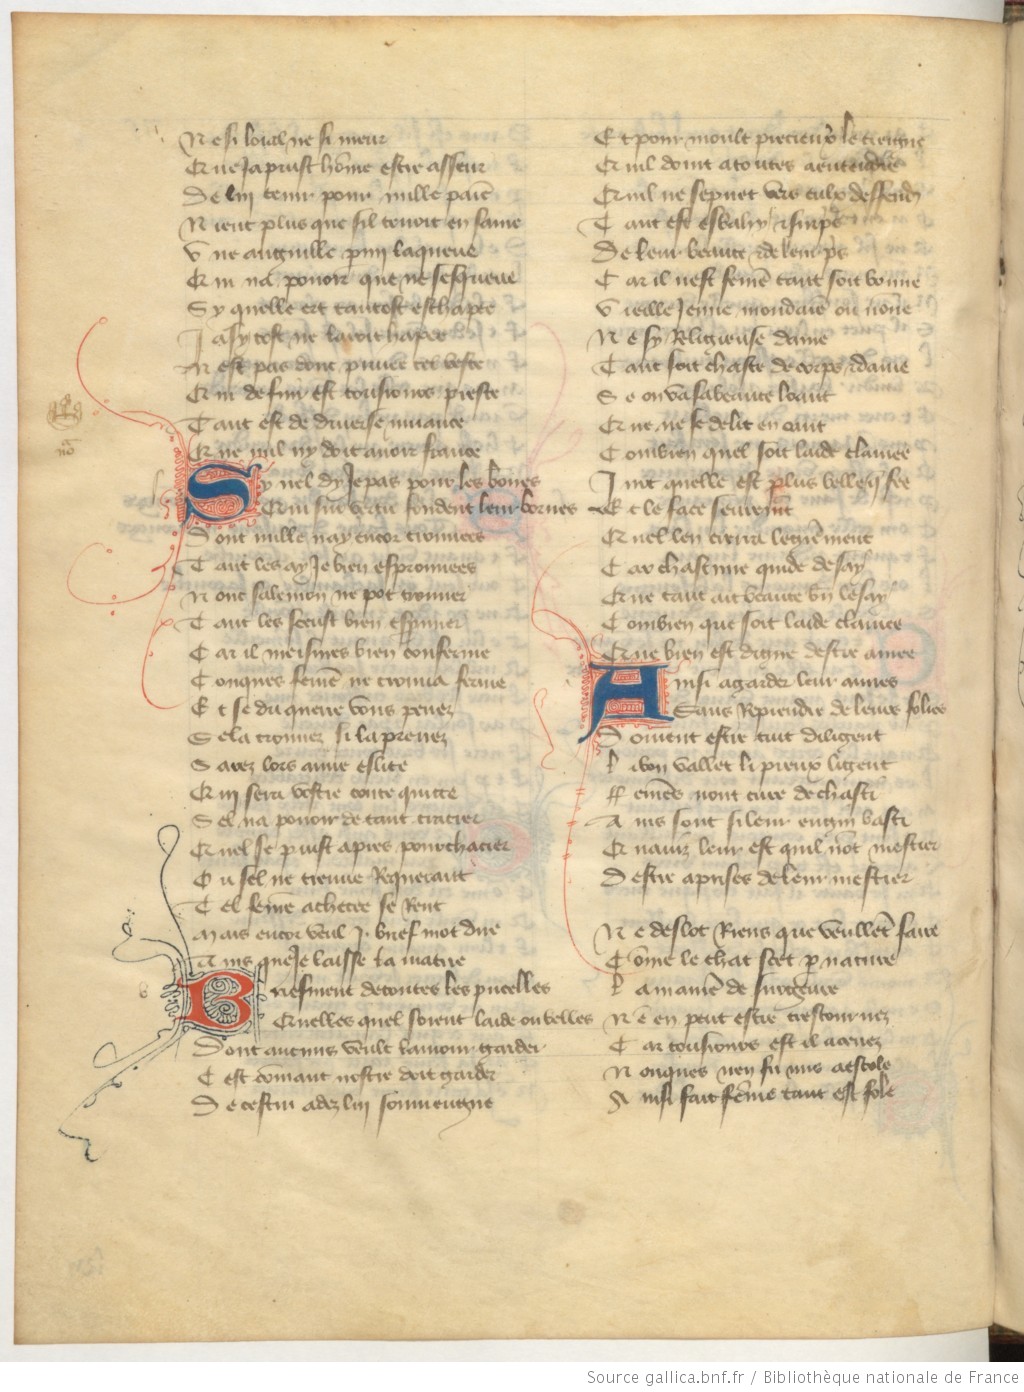 Ne si loial ne si meur
Et ne la prust home estre asseur
De lui tenir pour mille paine
Nient plus que sil tenoit en saine
Vne anguille p mi la queue
Et ni na pouoir que ne sesqueue
Sy quelle ert tantost eschapee
Ja sy tost ne lauoit hapee
Nest pas donc priuee tel beste
Et ni de fuir est tousiours preste
Tant est de diuerse muance
Et ne nul ny doit auoir fiance
Sy nel dy Je pas pour les bones
Et ni sur vertu fondent leur bornes
Dont mille nay encor trouuees
Tant les ay Je bien esprouuees
Nonc salemon ne pot trouuer
Tant les sceust bien esprouuer
Car il meismes bien conferme
Conques feme ne trouua ferme
Et se du querre vous penez
Se la trouuez si la prenez
Sarez lors amie eslite
Et ni sera vostre toute quitte
Sel na pouoir de tant tracier
Et nel se puist apres pourchacier
Ou sel ne treuue Requerant
Tel feme achetee se Rent
Mais encor veul J. brief mot dire
Ains que Je laisse la matire
Briefment de toutes les pucelles
Et nelles quel soient laide ou belles
Dont aucuns veult lamour garder
Cest comant nostre doit garder
De cestui adez lui souuiengne
Et pour moult precieux le tiengne
Et nil doint a toutes a entendre
Et nil ne se puet vers eulx deffendre
Tant est esbahy & surpris
De leur beaute & de leur pris
Car il nest feme tant soit bonne
Vieille Jeune mondaine ou nonne
Ne sy Religieuse dame
Tant soit chaste de corps & dame
Se on va sa beaute loant
Et ne ne se delit en oant
Combien quel soit laide clamee
Jurt quelle est plus belle q fee
Et le face seurement
Et nel len croira legierement
Car chascune quide de say
Et ne tant ait beaute bn le say
Combien que soit laide clamee
Et ne bien est digne destre amee
Ainsi a garder leur amies
Sans Reprendre de leurs folies
Doiuent estre tuit diligent
Li bon vallet li preux li gent
Femes nont cure de chasti
Ains sont si leur engin basti
Et nauiz leur est quil nont mestier
Destre aprises de leur mestier
Ne deslot Riens que veullent faire
Come le chat scet p nature
La maniere de surgeure
Ne en peut estre trestournez
Car tousiours est il a ce nez
Nonques nen fu mis a escole
Ainsi fait feme tant est fole
Source gallica.bnf.fr / Bibliothèque nationale de France